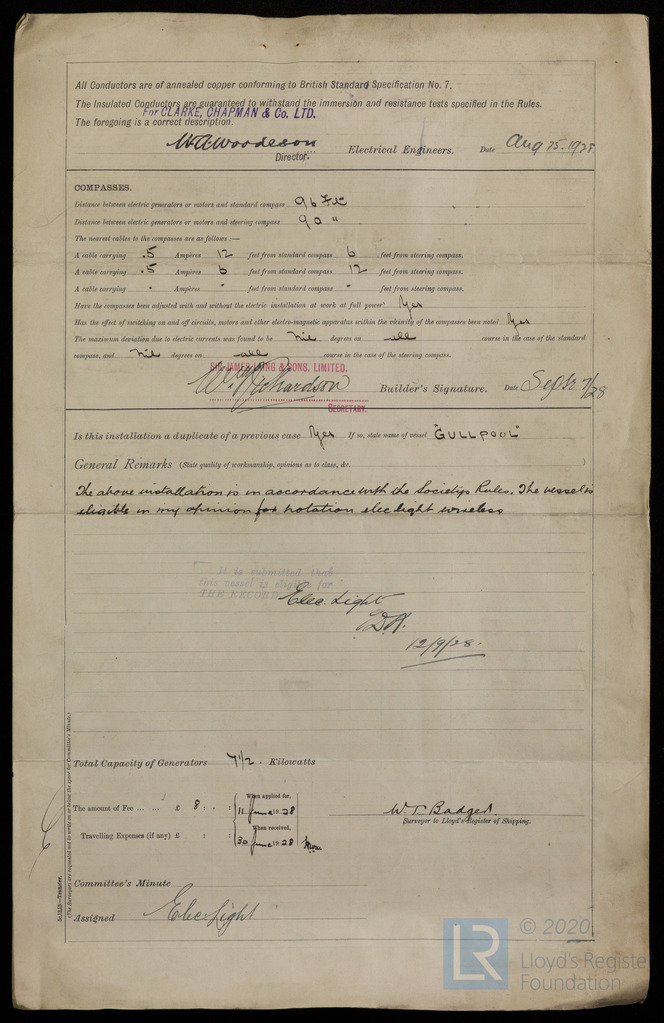 All Conductors are of annealed copper conforming to British Standard Specification No. 7.
The Insulated Conductors are guaranteed to withstand the immersion and resistance tests specified in the Rules.
For CLARKE, CHAPMAN & Co. LTD.
The foregoing is a correct description.
W.A. Woodeson Electrical Engineers. Date Aug 25. 1928
Director.
COMPASSES.
Distance between electric generators or motors and standard compass 96 Ft
Distance between electric generators or motors and steering compass 90 "
The nearest cables to the compasses are as follows :—
A cable carrying .5 Ampères 12 feet from standard compass 6 feet from steering compass.
A cable carrying .5 Ampères 6 feet from standard compass 12 feet from steering compass.
A cable carrying - Ampères - feet from standard compass - feet from steering compass.
Have the compasses been adjusted with and without the electric installation at work at full power? Yes
Has the effect of switching on and off circuits, motors and other electro-magnetic apparatus within the vicinity of the compasses been noted? Yes
The maximum deviation due to electric currents was found to be Nil degrees on all course in the case of the standard
compass, and Nil degrees on all course in the case of the steering compass.
SIR JAMES LAING & SONS, LIMITED.
Richardson Builder's Signature. Date Sept 7/28
SECRETARY.
Is this installation a duplicate of a previous case Yes If so, state name of vessel "GULLPOOL"
General Remarks (State quality of workmanship, opinions as to class, &c. )
The above installation is in accordance with the Societys Rules. The vessel is
eligible in my opinion for notation elec light wireless
It is submitted that
this vessel is eligible for
THE RECORD Elec. Light
12/9/28.
Total Capacity of Generators 7 1/2 . Kilowatts
When applied for,
The amount of Fee ... ... £ 8 : . : 11 June 1928
W.T. Badger
Surveyor to Lloyd's Register of Shipping.
When received,
Travelling Expenses (if any) £ : : 30 June 1928
Committee's Minute
Assigned Elec Light
(The Surveyors are requested not to write on or below the space for Committee's Minute.)
© 2020
LR Lloyd's Register
Foundation